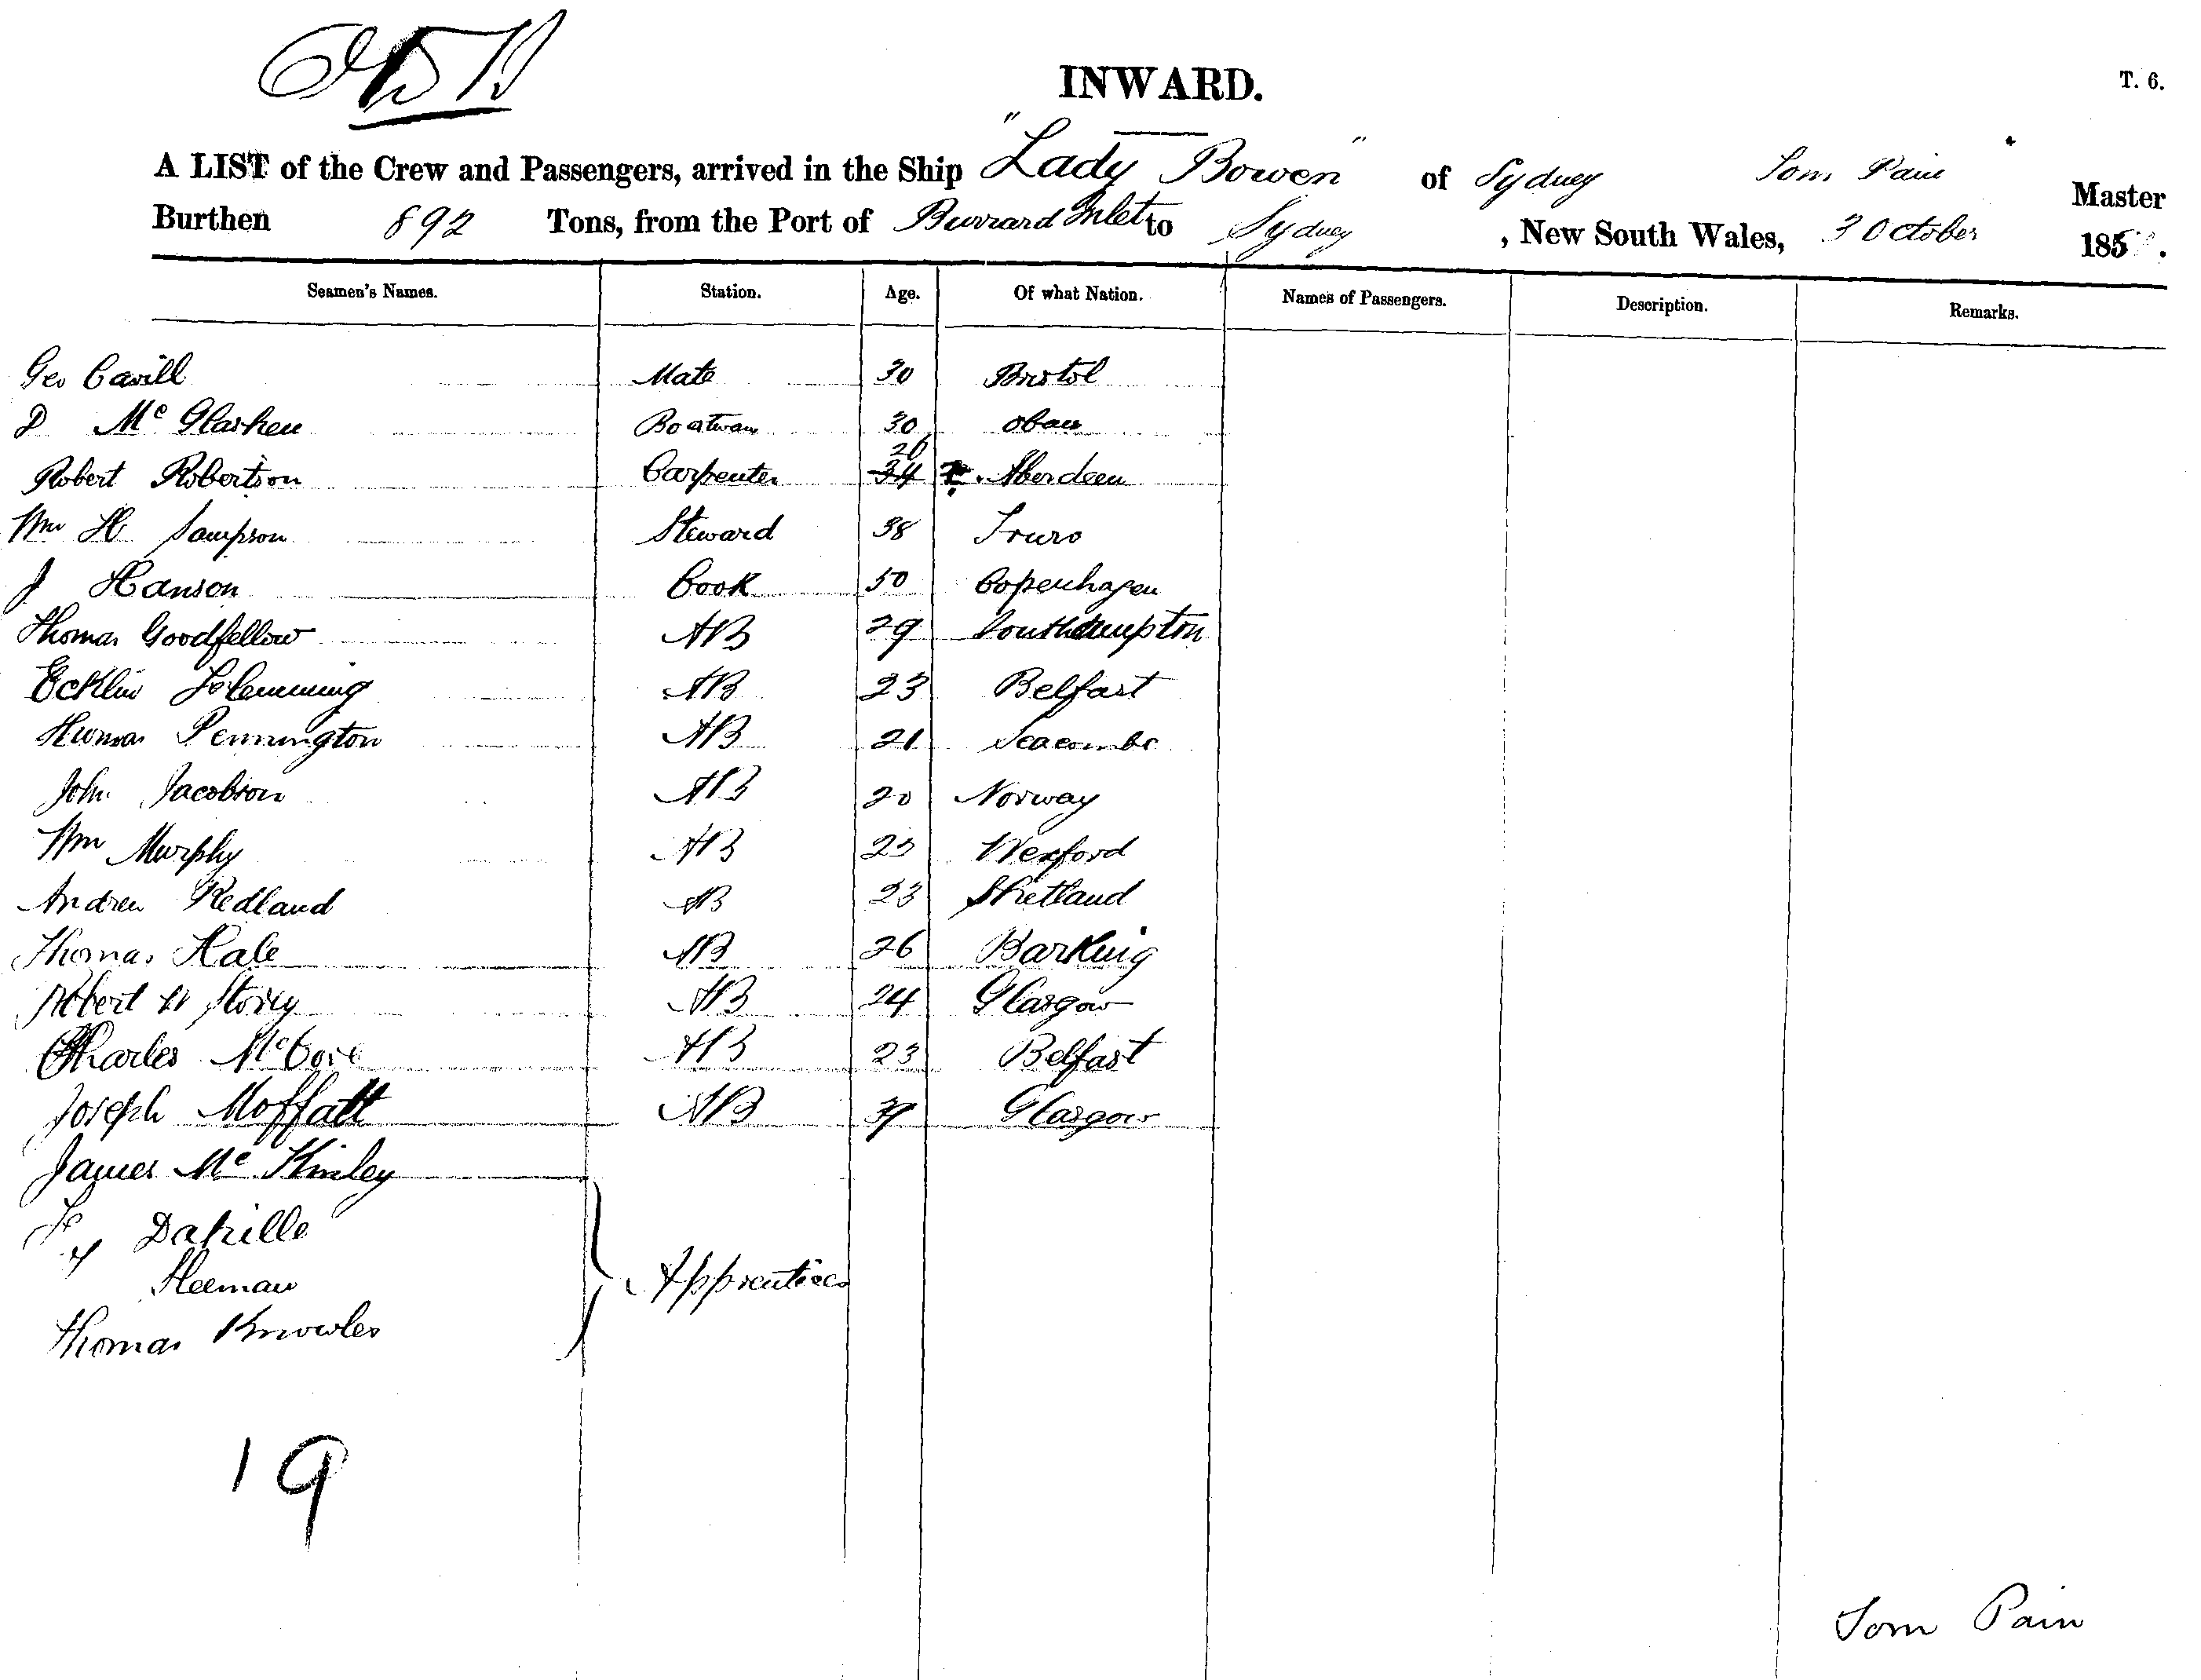 INWARD.
T. 6.
A LIST of the Crew and Passengers, arrived in the Ship "Lady Bowen" of Sydney Tom Pain Master
Burthen 892 Tons, from the Port of Burrard Inlet to Sydney, New South Wales, 3 October 185
Seamen's Names. Station. Age. Of what Nation. Names of Passengers. Description. Remarks.
Geo Cavill Mate 30 Bristol
D Mc Glashen Boatswan 30 Oban
26
Robert Robertson Carpenter 34 Aberdeen
Wm H Sampson Steward 38 Truro
J Hanson Cook 50 Copenhagen
Thomas Goodfellow AB 29 Southampton
Ecklin Flemming AB 23 Belfast
Thomas Pennington AB 21 Seacombe
John Jacobson AB 20 Norway
Wm Murphy AB 23 Wexford
Andrew Redland AB 23 Shetland
Thomas Hale AB 26 Barking
Robert W Storey AB 24 Glasgow
Charles AB 23 Belfast
Joseph Moffatt AB 39 Glasgow
James Mc Kinley
Sleeman
Apprentices
Thomas Knowles
19
Tom Pain